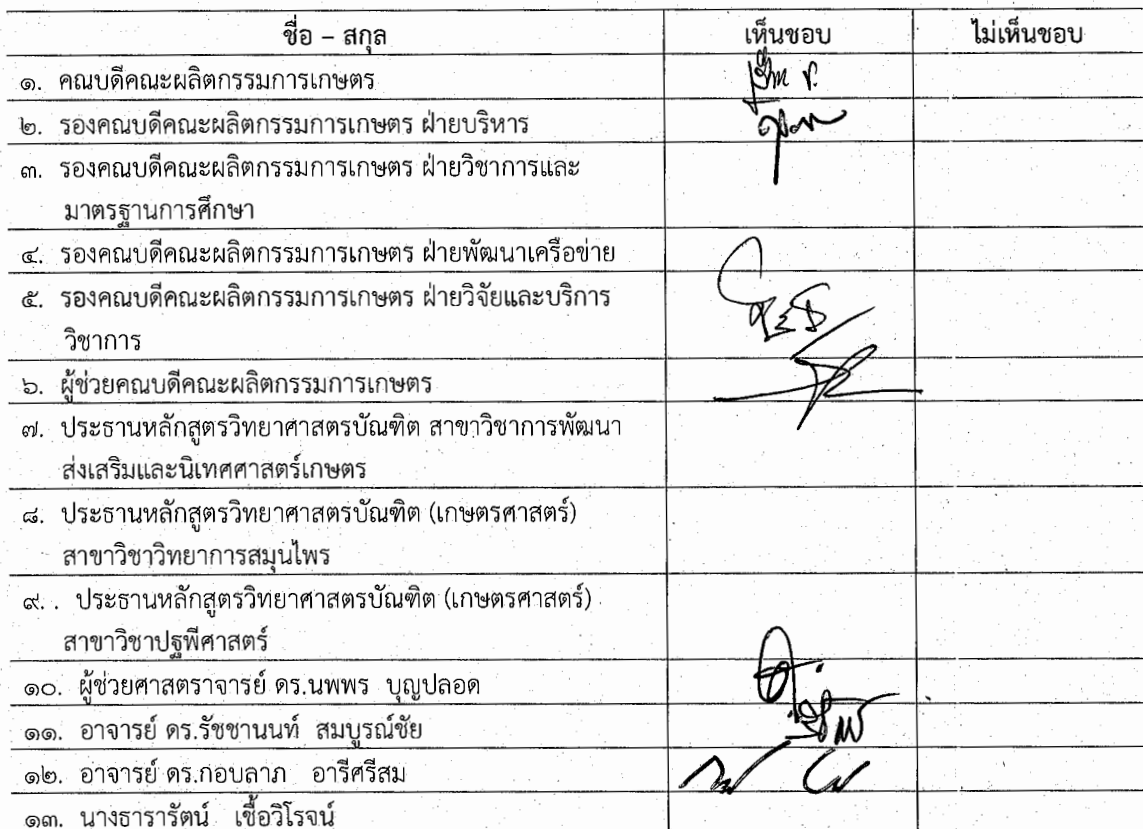 ชื่อ – สกุล เห็นชอบ ไม่เห็นชอบ
๑. คณบดีคณะผลิตกรรมการเกษตร
๒. รองคณบดีคณะผลิตกรรมการเกษตร ฝ่ายบริหาร
๓. รองคณบดีคณะผลิตกรรมการเกษตร ฝ่ายวิชาการและ
มาตรฐานการศึกษา
๔. รองคณบดีคณะผลิตกรรมการเกษตร ฝ่ายพัฒนาเครือข่าย
๕. รองคณบดีคณะผลิตกรรมการเกษตร ฝ่ายวิจัยและบริการ
วิชาการ
๖. ผู้ช่วยคณบดีคณะผลิตกรรมการเกษตร
๗. ประธานหลักสูตรวิทยาศาสตรบัณฑิต สาขาวิชาการพัฒนา
ส่งเสริมและนิเทศศาสตร์เกษตร
๘. ประธานหลักสูตรวิทยาศาสตรบัณฑิต (เกษตรศาสตร์)
สาขาวิชาวิทยาการสมุนไพร
๙. . ประธานหลักสูตรวิทยาศาสตรบัณฑิต (เกษตรศาสตร์)
สาขาวิชาปฐพีศาสตร์
๑๐. ผู้ช่วยศาสตราจารย์ ดร.นพพร บุญปลอด
๑๑. อาจารย์ ดร.รัชชานนท์ สมบูรณ์ชัย
๑๒. อาจารย์ ดร.กอบลาภ อารีศรีสม
๑๓. นางธารารัตน์ เชื้อวิโรจน์